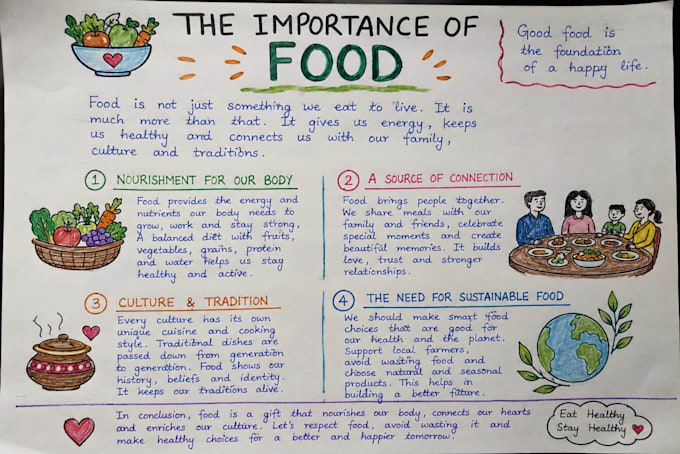 THE IMPORTANCE OF
FOOD
Good food is
the foundation
of a happy life.
Food is not just something we eat to live. It is
much more than that. It gives us energy, keeps
us healthy and connects us with our family,
culture and traditions.
1 NOURISHMENT FOR OUR BODY
Food provides the energy and
nutrients our body needs to
grow, work and stay strong.
A balanced diet with fruits,
vegetables, grains, protein
and water helps us stay
healthy and active.
2 A SOURCE OF CONNECTION
Food brings people together.
We share meals with our
family and friends, celebrate
special moments and create
beautiful memories. It builds
love, trust and stronger
relationships.
3 CULTURE & TRADITION
Every culture has its own
unique cuisine and cooking
style. Traditional dishes are
passed down from generation
to generation. Food shows our
history, beliefs and identity.
It keeps our traditions alive.
4 THE NEED FOR SUSTAINABLE FOOD
We should make smart food
choices that are good for
our health and the planet.
Support local farmers,
avoid wasting food and
choose natural and seasonal
products. This helps in
building a better future.
In conclusion, food is a gift that nourishes our body, connects our hearts
and enriches our culture. Let's respect food, avoid wasting it and
make healthy choices for a better and happier tomorrow.
Eat Healthy
Stay Healthy